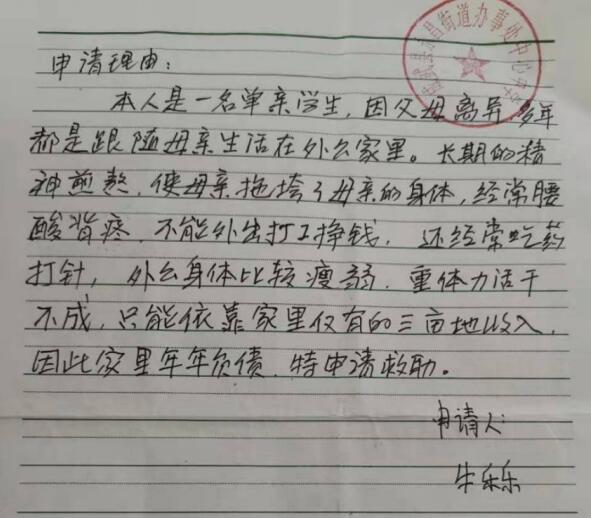 街道办事处中心
申请理由:
本人是一名单亲学生,因父母离异,多年
都是跟随母亲生活在外公家里。长期的精
神煎熬,使母亲拖垮了母亲的身体,经常腰
酸背疼,不能外出打工挣钱,还经常吃药
打针,外公身体比较瘦弱,重体力活干
不成,只能依靠家里仅有的三亩地收入,
因此家里年年负债,特申请救助。
申请人:
牛乐乐